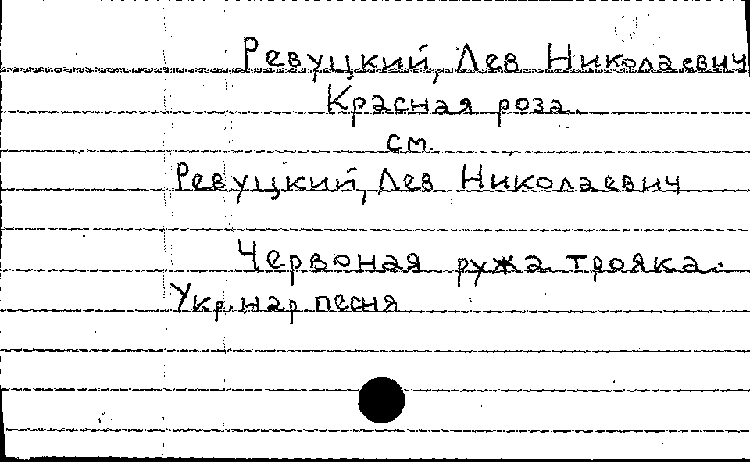 Ревуцкий, Лев Николаевич
Красная роза.
см.
Ревуцкий, Лев Николаевич
Червоная ружа трояка.
Укр. нар песня